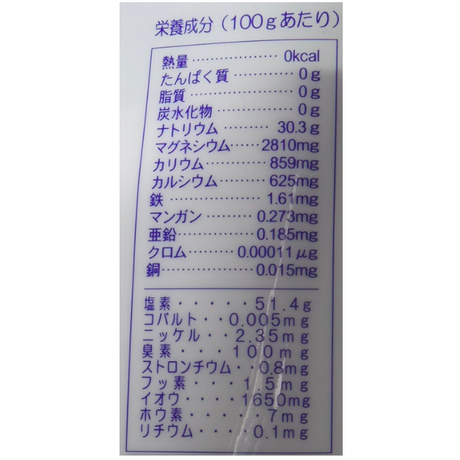 栄養成分（100gあたり）
熱量………………0kcal
たんぱく質…………0g
脂質…………………0g
炭水化物……………0g
ナトリウム………30.3g
マグネシウム……2810mg
カリウム…………859mg
カルシウム………625mg
鉄…………………1.61mg
マンガン………0.273mg
亜鉛……………0.185mg
クロム………0.00011μg
銅………………0.015mg
塩素・・・・・51.4g
コバルト・・0.005mg
ニッケル・・・2.35mg
臭素・・・・・100mg
ストロンチウム・・0.8mg
フッ素・・・・1.5mg
イオウ・・・・1650mg
ホウ素・・・・・7mg
リチウム・・・・0.1mg